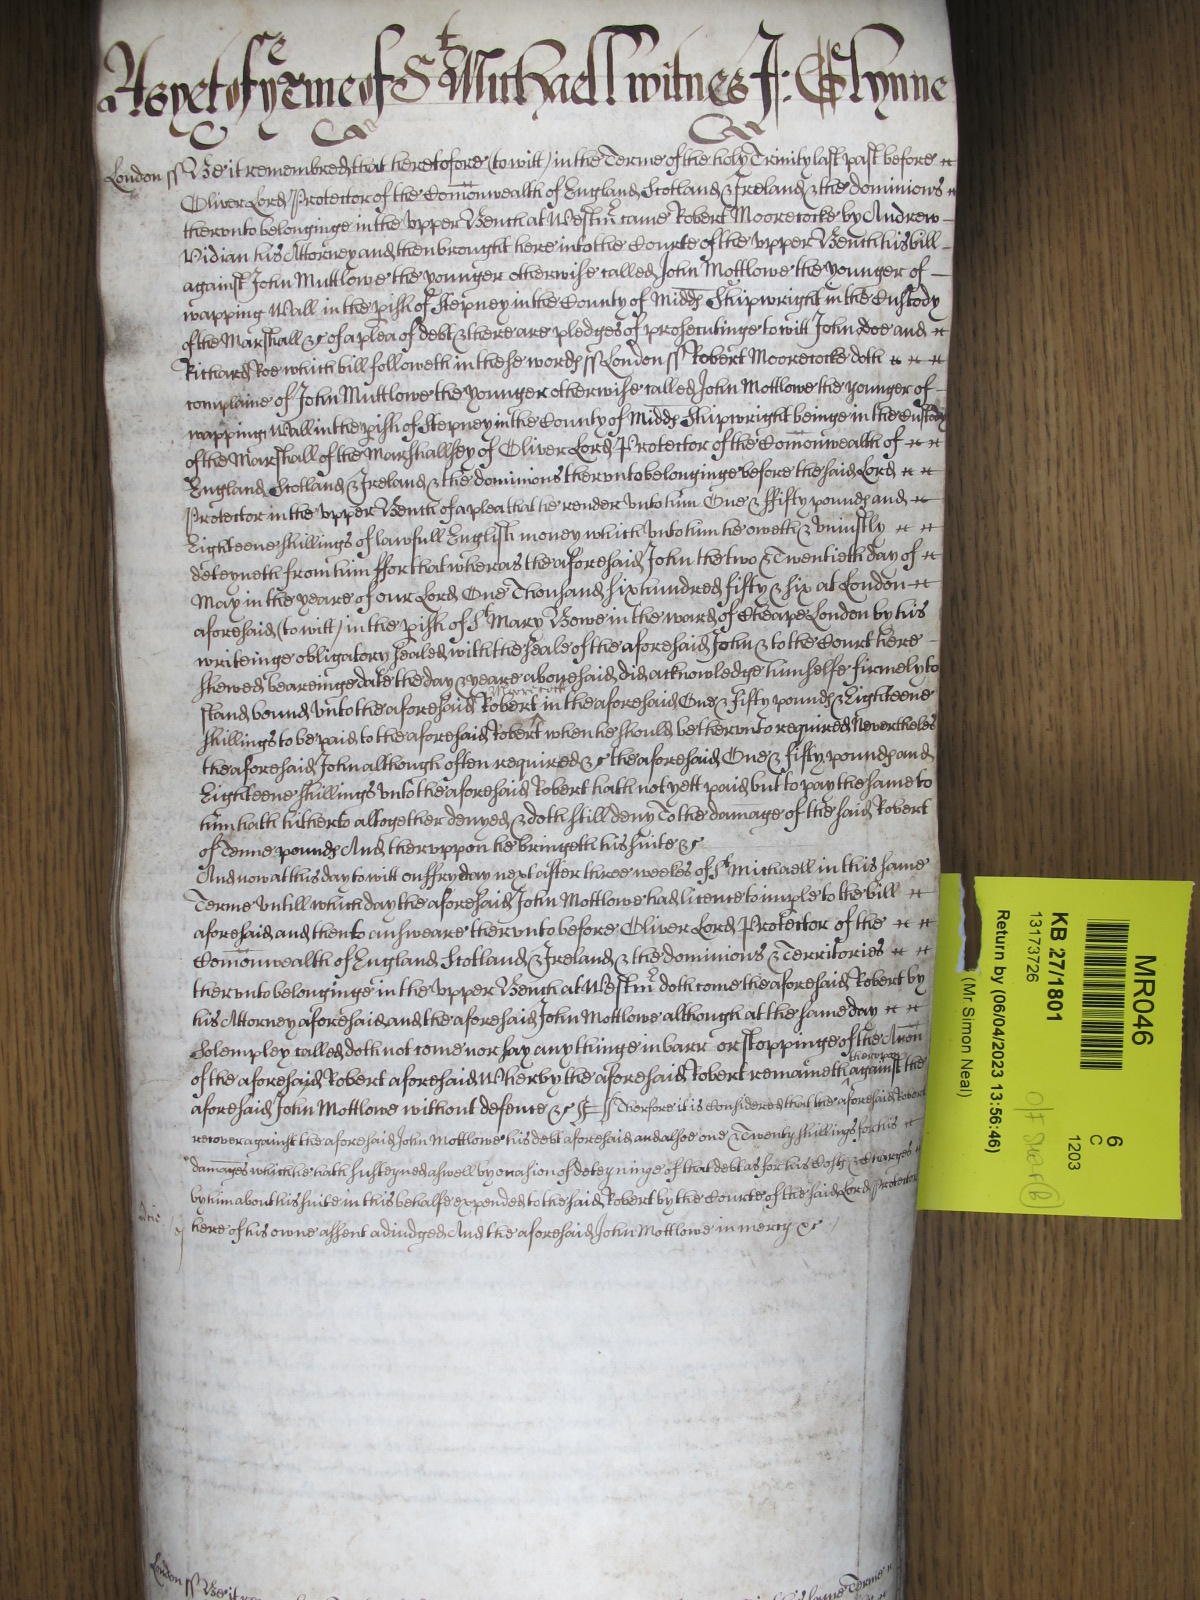 As yet of ye Terme of St Michaell witnes J: Glynne
London ss Be it remembred that heretofore (to witt) in the Terme of the holy Trinity last past before
Oliver Lord Protector of the Comonwealth of England Scotland & Ireland & the dominions
therunto belonginge in the upper Bench at Westmr came Robert Moorecocke by Andrew
Vidian his Attorney and then brought here into the Courte of the upper Bench his bill
against John Muttlowe the younger otherwise called John Mottlowe the younger of
wapping Wall in the pish of Stepney in the County of Midds Shipwright in the Custody
of the Marshall &c of a plea of debt & there are pledges of prosecutinge to witt John Doe and
Richard Roe which bill followeth in these words ss London ss Robert Moorecocke doth
complaine of John Muttlowe the younger otherwise called John Mottlowe the younger of
wapping Wall in the pish of Stepney in the County of Midds Shipwright beinge in the Custody
of the Marshall of the Marshallsey of Oliver Lord Protector of the Comonwealth of
England Scotland & Ireland & the dominions therunto belonginge before the said Lord
Protector in the upper Bench of a plea that he render unto him One & ffifty pounds and
Eighteene shillings of lawfull English money which unto him he oweth & uniustly
deteyneth from him ffor that wheras the aforesaid John the two & Twentieth day of
May in the yeare of our Lord One Thousand six hundred fifty & six at London
aforesaid (to witt) in the pish of St Mary Bowe in the ward of Cheape London by his
writeinge obligatory sealed with the seale of the aforesaid John & to the Court here
shewed beareinge date the day & yeare abovesaid did acknowledge himselfe firmely to
stand bound unto the aforesaid Robert in the aforesaid One & fifty pounds & Eighteene
shillings to be paid to the aforesaid Robert when he should be therunto required Nevertheles
the aforesaid John although often required &c the aforesaid One & fifty pounds and
Eighteene shillings unto the aforesaid Robert hath not yett paid but to pay the same to
him hath hitherto altogether denyed & doth still deny To the damage of the said Robert
of Tenne pounds And theruppon he bringeth his suite &c
And now at this day to witt on ffryday next after three weekes of St Michaell in this same
Terme untill which day the aforesaid John Mottlowe had licence to imple to the bill
aforesaid and then to answeare therunto before Oliver Lord Protector of the
Comonwealth of England Scotland & Ireland & the dominions & territories
therunto belonginge in the upper Bench at Westmr doth come the aforesaid Robert by
his Attorney aforesaid and the aforesaid John Mottlowe although at the same day
Solempley called doth not come nor say any thinge in barr or stoppinge of the Accon
of the aforesaid Robert aforesaid Wherby the aforesaid Robert remaineth theruppon against the
aforesaid John Mottlowe without defence &c Therfore it is Considered that the aforesaid Robert
recover against the aforesaid John Mottlowe his debt aforesaid and alsoe one & Twenty shillings for his
damages which he hath susteyned aswell by occasion of deteyninge of that debt as for his Costs & Charges
by him about his suite in this behalfe expended to the said Robert by the Courte of the said Lord Protector
here of his owne assent adiudged And the aforesaid John Mottlowe in mercy &c
London ss Be it
same Terme
MR046
6
C
1203
KB 27/1801
13173726
Return by (06/04/2023 13:56:46)
(Mr Simon Neal)